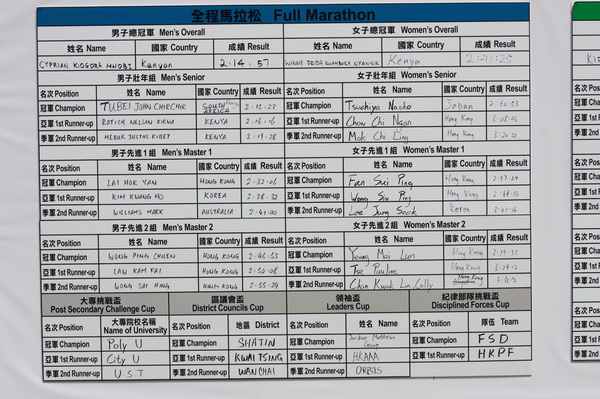 全程馬拉松 Full Marathon
男子總冠軍 Men's Overall 女子總冠軍 Women's Overall
姓名 Name 國家 Country 成績 Result 姓名 Name 國家 Country 成績 Result
CYPRIAN KIOGORA Kenyan 2:14:57 Kenya 2:41:25
男子壯年組 Men's Senior 女子壯年組 Women's Senior
名次 Position 姓名 Name 國家 Country 成績 Result 名次 Position 姓名 Name 國家 Country 成績 Result
冠軍 Champion TUBEI JOHN CHIRCHIR SOUTH AFRICA 冠軍 Champion Tsuchiya Naoko Japan
亞軍 1st Runner-up ROTICH KENYA 2:16:16 亞軍 1st Runner-up Chow Chi Ngan Hong Kong
季軍 2nd Runner-up JULIUS KIBET KENYA 季軍 2nd Runner-up Mok Ling Hong Kong
男子先進1組 Men's Master 1 女子先進1組 Women's Master 1
名次 Position 姓名 Name 國家 Country 成績 Result 名次 Position 姓名 Name 國家 Country 成績 Result
冠軍 Champion LAI HOK YAN HONG KONG 2:32:06 冠軍 Champion Fan Sui Ping Hong Kong
亞軍 1st Runner-up KIM KWANG HO KOREA 2:38:32 亞軍 1st Runner-up Wong Siu Ping Hong Kong
季軍 2nd Runner-up WILLIAMS MARK AUSTRALIA 2:41:00 季軍 2nd Runner-up Lee Jung Sook Korea
男子先進2組 Men's Master 2 女子先進2組 Women's Master 2
名次 Position 姓名 Name 國家 Country 成績 Result 名次 Position 姓名 Name 國家 Country 成績 Result
冠軍 Champion WONG PING CHUEN HONG KONG 冠軍 Champion Yeung Mei Lun Hong Kong
亞軍 1st Runner-up LAU KAM FAI HONG KONG 2:50:08 亞軍 1st Runner-up Tse Pauline Hong Kong
季軍 2nd Runner-up WONG SAI HONG KONG 2:55:29 季軍 2nd Runner-up Chan Kwok Lin, Colly Hong Kong
大專挑戰盃 區議會盃 領袖盃 紀律部隊挑戰盃
Post Secondary Challenge Cup District Councils Cup Leaders Cup Disciplined Forces Cup
名次 Position 大專院校名稱 Name of University 名次 Position 地區 District 名次 Position 姓名 Name 名次 Position 隊伍 Team
冠軍 Champion Poly U 冠軍 Champion SHATIN 冠軍 Champion 冠軍 Champion FSD
亞軍 1st Runner-up City U 亞軍 1st Runner-up KWAI TSING 亞軍 1st Runner-up HKAAA 亞軍 1st Runner-up HKPF
季軍 2nd Runner-up U.S.T 季軍 2nd Runner-up WANCHAI 季軍 2nd Runner-up ORBIS